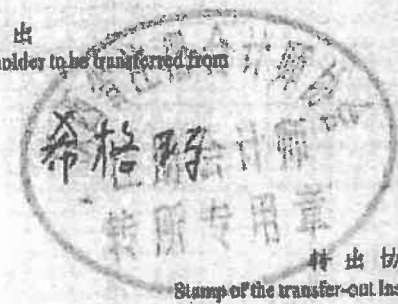 出
holder to be transferred from
希格玛
注册会计师
转所专用章
转出协
Stamp of the transfer-out Ins